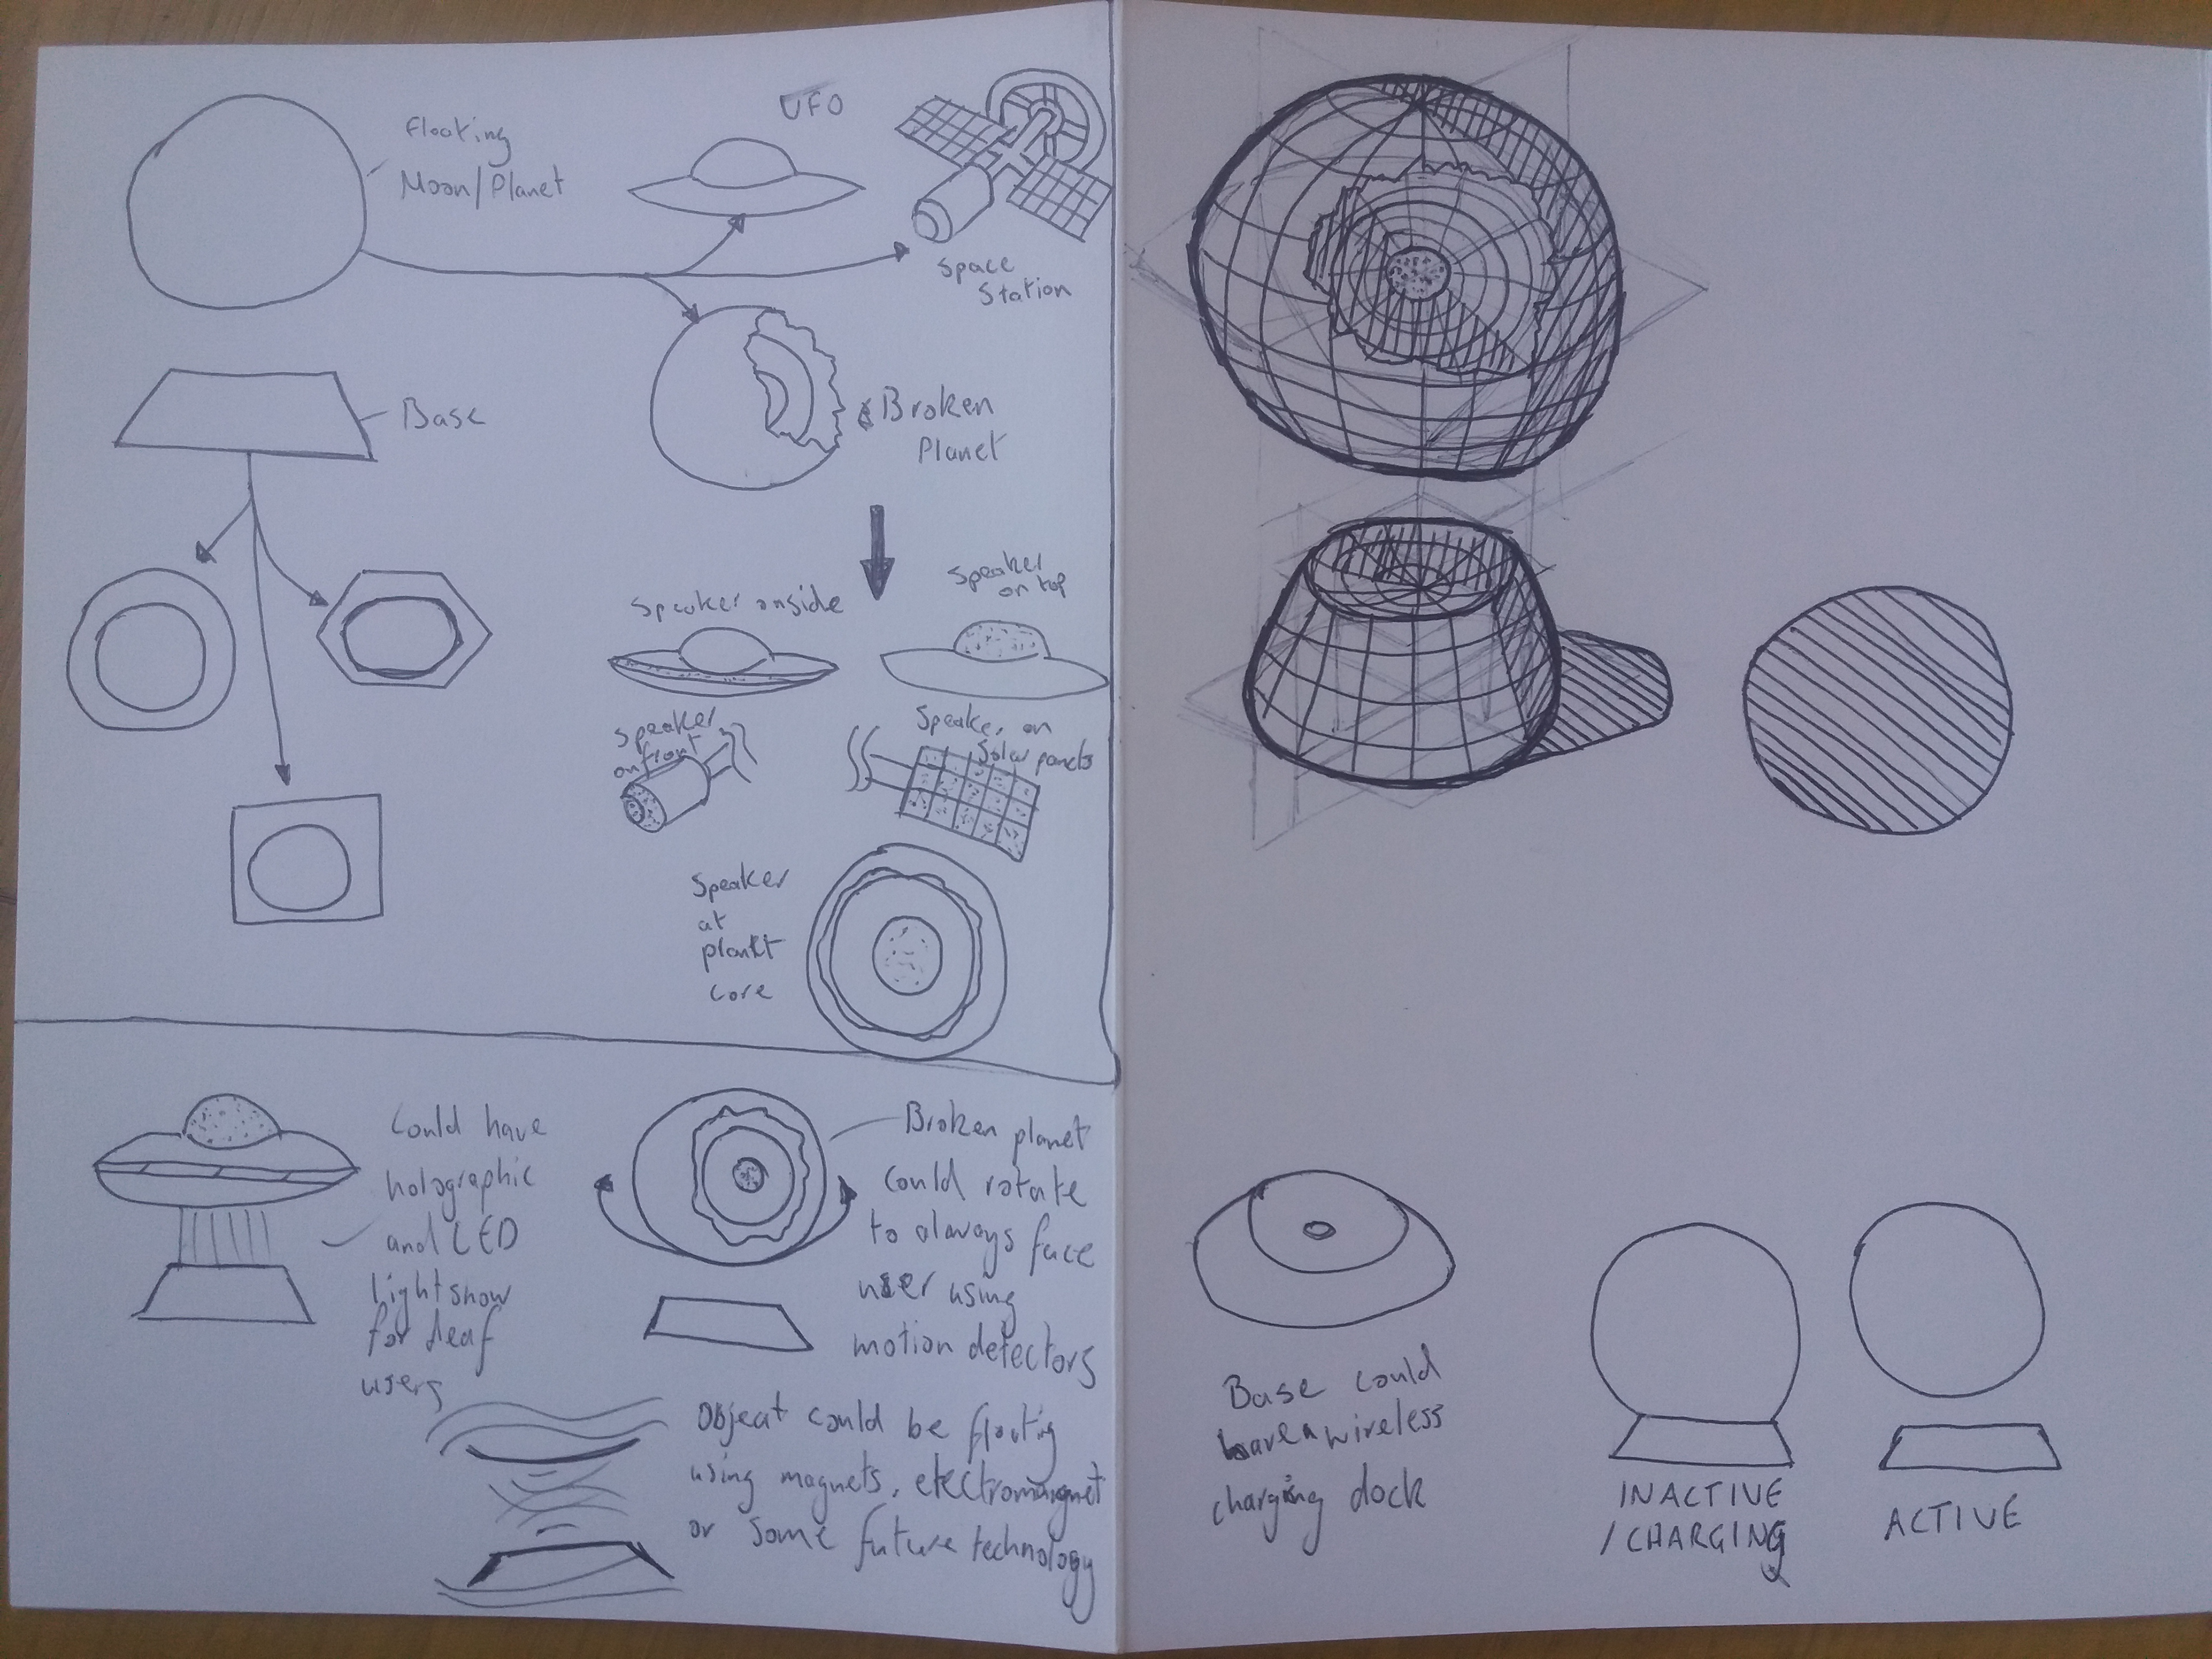 Floating
Moon/Planet
UFO
Space
Station
Base
Broken
Planet
Speaker inside
Speaker
on top
Speaker
on front
Speaker on
Solar panels
Speaker
at
planet
core
Could have
holographic
and LED
lightshow
for deaf
users
Broken planet
could rotate
to always face
user using
motion detectors
Object could be floating
using magnets, electromagnet
or some future technology
Base could
have a wireless
charging dock
INACTIVE
/CHARGING
ACTIVE